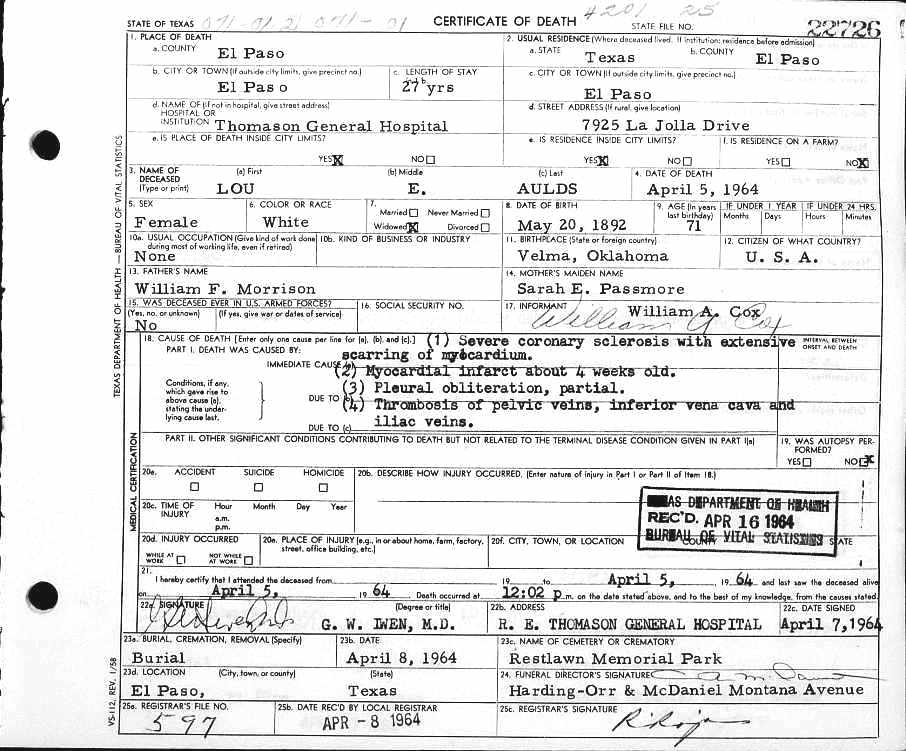 STATE OF TEXAS
CERTIFICATE OF DEATH
#201 25
STATE FILE NO.
22726
1. PLACE OF DEATH
a. COUNTY
El Paso
2. USUAL RESIDENCE (Where deceased lived. If institution: residence before admission)
a. STATE
Texas
b. COUNTY
El Paso
b. CITY OR TOWN (If outside city limits, give precinct no.)
El Paso
c. LENGTH OF STAY
27 yrs
c. CITY OR TOWN (If outside city limits, give precinct no.)
El Paso
d. NAME OF (If not in hospital, give street address)
HOSPITAL OR
INSTITUTION Thomason General Hospital
d. STREET ADDRESS (If rural, give location)
7925 La Jolla Drive
e. IS PLACE OF DEATH INSIDE CITY LIMITS?
YES X NO
e. IS RESIDENCE INSIDE CITY LIMITS?
YES X NO
f. IS RESIDENCE ON A FARM?
YES NO X
3. NAME OF DECEASED (Type or print)
(a) First
LOU
(b) Middle
E.
(c) Last
AULDS
4. DATE OF DEATH
April 5, 1964
5. SEX
Female
6. COLOR OR RACE
White
7. Married Never Married
Widowed X Divorced
8. DATE OF BIRTH
May 20, 1892
9. AGE (In years last birthday)
71
IF UNDER 1 YEAR
Months Days
IF UNDER 24 HRS.
Hours Minutes
10a. USUAL OCCUPATION (Give kind of work done during most of working life, even if retired)
None
10b. KIND OF BUSINESS OR INDUSTRY
11. BIRTHPLACE (State or foreign country)
Velma, Oklahoma
12. CITIZEN OF WHAT COUNTRY?
U. S. A.
13. FATHER'S NAME
William F. Morrison
14. MOTHER'S MAIDEN NAME
Sarah E. Passmore
15. WAS DECEASED EVER IN U.S. ARMED FORCES?
(Yes, no, or unknown) (If yes, give war or dates of service)
No
16. SOCIAL SECURITY NO.
17. INFORMANT
William A. Cox
William A Cox
18. CAUSE OF DEATH [Enter only one cause per line for (a), (b), and (c).]
PART I. DEATH WAS CAUSED BY:
IMMEDIATE CAUSE
(1) Severe coronary sclerosis with extensive
scarring of myocardium.
(2) Myocardial infarct about 4 weeks old.
(3) Pleural obliteration, partial.
(4) Thrombosis of pelvic veins, inferior vena cava and
iliac veins.
INTERVAL BETWEEN ONSET AND DEATH
Conditions, if any,
which gave rise to
above cause (a),
stating the under-
lying cause last.
DUE TO (b)
DUE TO (c)
PART II. OTHER SIGNIFICANT CONDITIONS CONTRIBUTING TO DEATH BUT NOT RELATED TO THE TERMINAL DISEASE CONDITION GIVEN IN PART I(a)
19. WAS AUTOPSY PERFORMED?
YES NO X
20a. ACCIDENT SUICIDE HOMICIDE
20b. DESCRIBE HOW INJURY OCCURRED. (Enter nature of injury in Part I or Part II of Item 18.)
20c. TIME OF INJURY
Hour Month Day Year
a.m.
p.m.
TEXAS DEPARTMENT OF HEALTH
REC'D. APR 16 1964
BUREAU OF VITAL STATISTICS
20d. INJURY OCCURRED
WHILE AT WORK NOT WHILE AT WORK
20e. PLACE OF INJURY (e.g., in or about home, farm, factory, street, office building, etc.)
20f. CITY, TOWN, OR LOCATION COUNTY STATE
21. I hereby certify that I attended the deceased from 19 to April 5, 1964 and last saw the deceased alive
on April 5, 1964. Death occurred at 12:02 p.m. on the date stated above, and to the best of my knowledge, from the causes stated.
22a. SIGNATURE (Degree or title)
G. W. IWEN, M.D.
22b. ADDRESS
R. E. THOMASON GENERAL HOSPITAL
22c. DATE SIGNED
April 7, 1964
23a. BURIAL, CREMATION, REMOVAL (Specify)
Burial
23b. DATE
April 8, 1964
23c. NAME OF CEMETERY OR CREMATORY
Restlawn Memorial Park
23d. LOCATION (City, town, or county) (State)
El Paso, Texas
24. FUNERAL DIRECTOR'S SIGNATURE
Harding-Orr & McDaniel Montana Avenue
25a. REGISTRAR'S FILE NO.
597
25b. DATE REC'D BY LOCAL REGISTRAR
APR -8 1964
25c. REGISTRAR'S SIGNATURE
TEXAS DEPARTMENT OF HEALTH — BUREAU OF VITAL STATISTICS
MEDICAL CERTIFICATION
VS-112, REV. 1/58